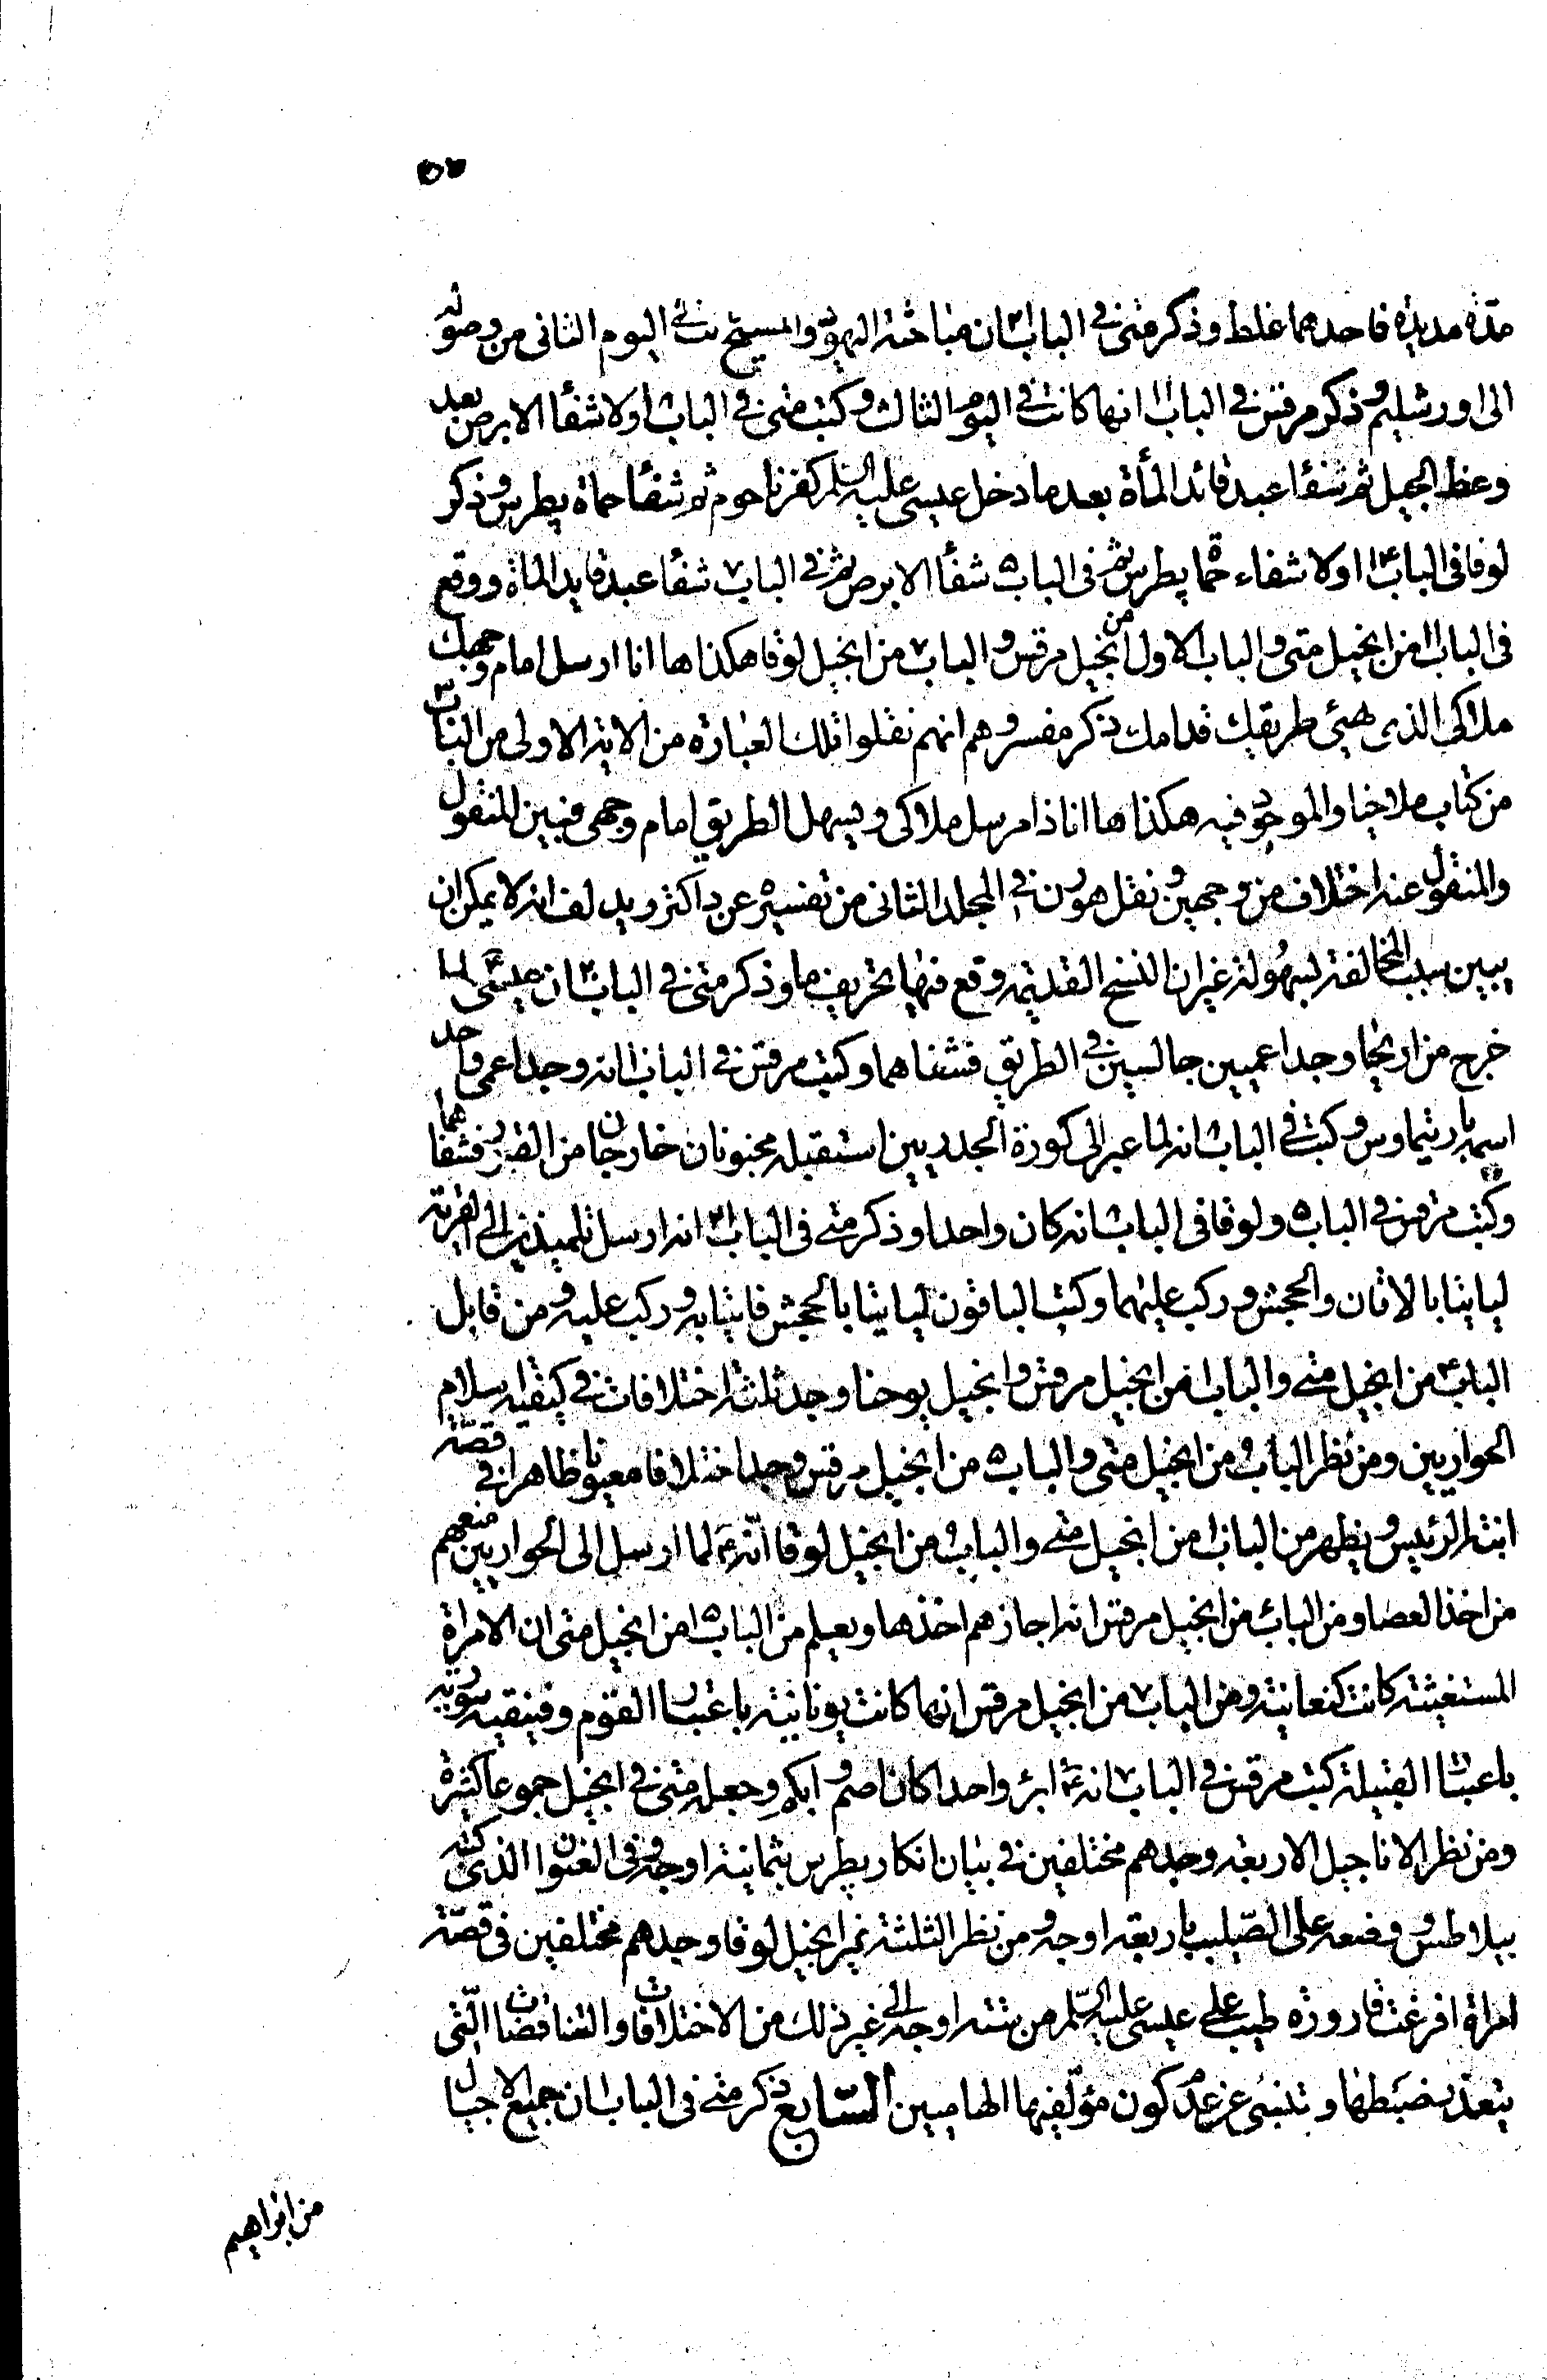 مدة مديدة فاحدهما غلط وذكر متى فى الباب ٢١ ان مباحثة اليهود والمسيح كانت فى اليوم الثانى من وصوله
الى اورشليم وذكر مرقس فى الباب ١١ انها كانت فى اليوم الثالث وكتب متى فى الباب ٨ اولا شفأ الابرص بعد
وعظ الجبل ثم شفأ عبد قائد المأة بعد ما دخل عيسى عليه السلم كفرناحوم ثم شفأ حماة پطرس وذكر
لوقا فى الباب ٤ اولا شفاء حماة پطرس ثم فى الباب ٥ شفأ الابرص ثم فى الباب ٧ شفأ عبد قايد الماة ووقع
فى الباب ١١ من انجيل متى والباب الاول من انجيل مرقس والباب ٧ من انجيل لوقا هكذا ها انا ارسل امام وجهك
ملاكى الذى يهيئ طريقك قدامك ذكر مفسروهم انهم نقلوا تلك العبارة من الاية الاولى من الباب ٣
من كتاب ملاخيا والموجود فيه هكذا ها اناذا مرسل ملاكى ويسهل الطريق امام وجهى فبين المنقول
والمنقول عنه اختلاف من وجهين ونقل هورن فى المجلد الثانى من تفسيره عن داكثر ويد لف انه لا يمكن ان
يبين سبب المخالفة بسهولة غير ان النسخ القديمة وقع فيها تحريف ما وذكر متى فى الباب ٢٠ ان عيسى لما
خرج من اريحا وجد اعميين جالسين فى الطريق فشفاهما وكتب مرقس فى الباب ١٠ انه وجد اعمى واحد
اسمه بارتيماوس وكتب فى الباب ٨ انه لما عبر الى كورة الجدريين استقبله مجنونان خارجان من القبور فشفاهما
وكتب مرقس فى الباب ٥ ولوقا فى الباب ٨ انه كان واحدا وذكر متى فى الباب ٢١ انه ارسل تلميذين الى القرية
لياتيا بالاتان والجحش وركب عليهما وكتب الباقون لياتيا بالجحش فاتيا به وركب عليه ومن قابل
الباب ٤ من انجيل متى والباب ١ من انجيل مرقس وانجيل يوحنا وجد ثلثة اختلافات فى كيفية اسلام
الحواريين ومن نظر الباب ٩ من انجيل متى والباب ٥ من انجيل مرقس وجد اختلافا معنويا ظاهرا فى قصة
ابنة الرئيس ويظهر من الباب ١٠ من انجيل متى والباب ٩ من انجيل لوقا انه ع لما ارسل الى الحواريين منعهم
من اخذ العصا ومن الباب ٦ من انجيل مرقس انه اجازهم اخذها ويعلم من الباب ١٥ من انجيل متى ان الامراة
المستغيثة كانت كنعانية ومن الباب ٧ من انجيل مرقس انها كانت يونانية باعتبار القوم وفينقيه سورية
باعتبار القبيلة كتب مرقس فى الباب ٧ انه ع ابرء واحدا كان اصم وابكم وجعله متى فى انجيل جموعا كثيرة
ومن نظر الاناجيل الاربعة وجدهم مختلفين فى بيان انكار پطرس بثمانية اوجه وفى العنوان الذى كتبه
بيلاطس وضعه على الصليب باربعة اوجه ومن نظر الثلثة غير انجيل لوقا وجدهم مختلفين فى قصة
امراة افرغت قارورة طيب على عيسى عليه السلم من ستة اوجه الى غير ذلك من الاختلافات والتناقضات التى
يتعذر ضبطها وتنبئ عن عدم كون مؤلفيها الهاميين السابع ذكر متى فى الباب ١ ان جميع الاجيال
من ابراهيم